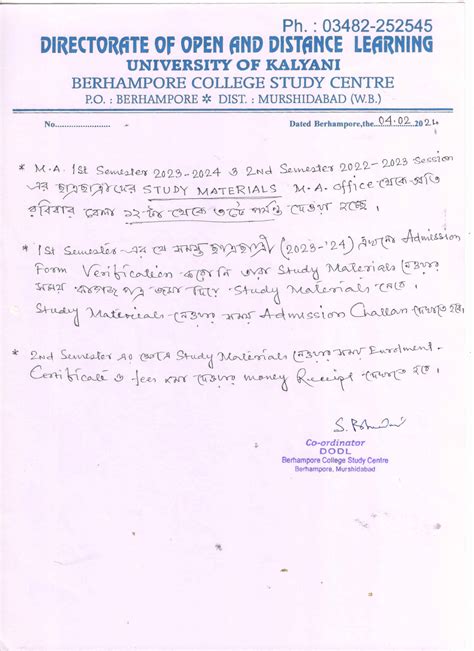 Ph. : 03482-252545
DIRECTORATE OF OPEN AND DISTANCE LEARNING
UNIVERSITY OF KALYANI
BERHAMPORE COLLEGE STUDY CENTRE
P.O. : BERHAMPORE * DIST. : MURSHIDABAD (W.B.)
No...................... Dated Berhampore,the 04.02 2024
* M.A. 1st Semester 2023-2024 ও 2nd Semester 2022-2023 Session
এর ছাত্রছাত্রীদের STUDY MATERIALS M.A. office থেকে প্রতি
রবিবার বেলা ১২টা থেকে ৩টে পর্যন্ত দেওয়া হচ্ছে।
* 1st Semester-এর যে সমস্ত ছাত্রছাত্রী (2023-'24) এখনো Admission
Form Verification করেনি তারা Study Materials নেওয়ার
সময় কাগজ পত্র জমা দিয়ে Study Materials নেবে।
Study Materials নেওয়ার সময় Admission Challan দেখাতে হবে।
* 2nd Semester এর Study Materials নেওয়ার সময় Enrolment-
Certificate ও fees জমা দেওয়ার money Receipt দেখাতে হবে।
Co-ordinator
DODL
Berhampore College Study Centre
Berhampore, Murshidabad